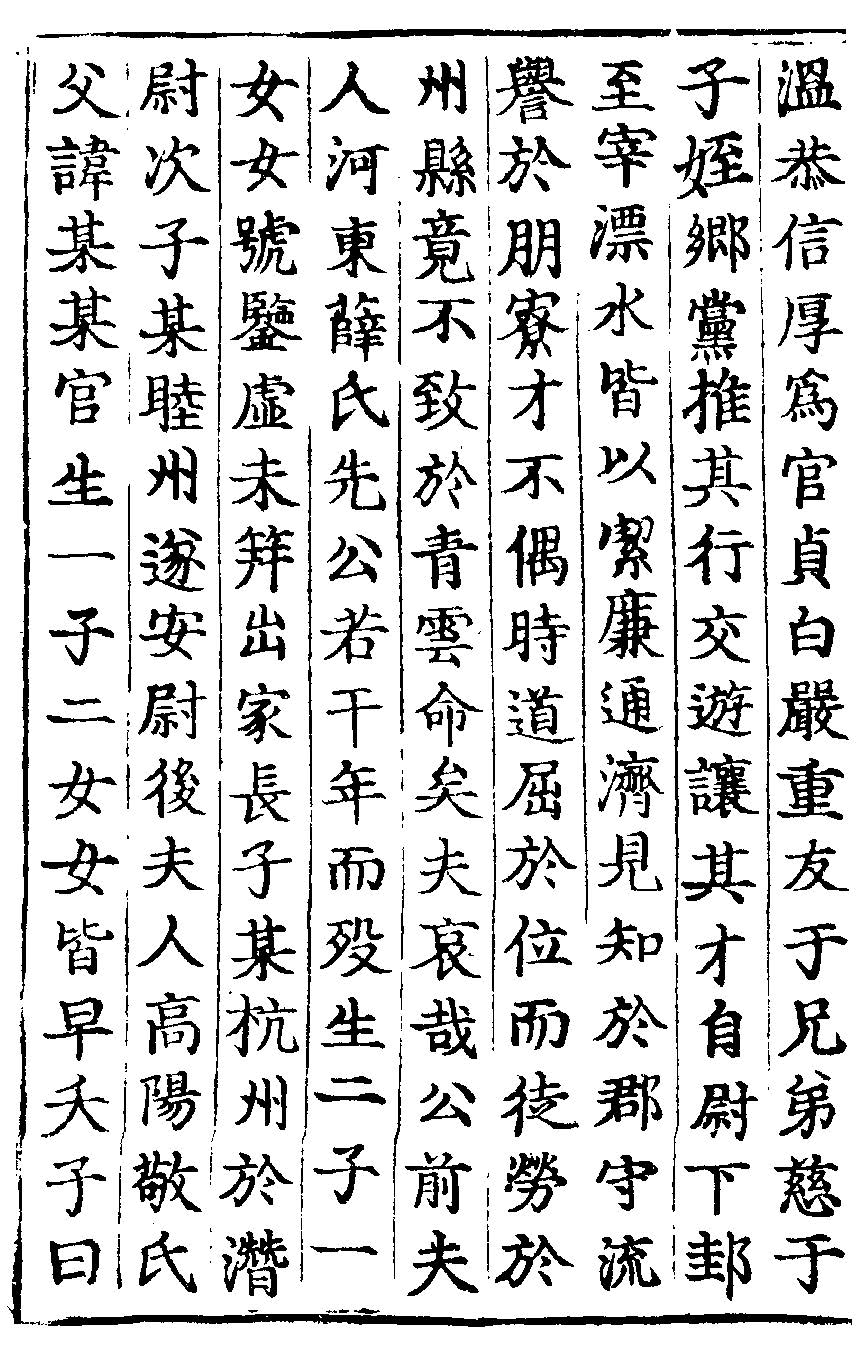 溫恭信厚爲官貞白嚴重友于兄弟慈于
子姪鄉黨推其行交遊讓其才自尉下邽
至宰漂水皆以潔廉通濟見知於郡守流
譽於朋寮才不偶時道屈於位而徒勞於
州縣竟不致於青雲命矣夫哀哉公前夫
人河東薛氏先公若干年而歿生二子一
女女號鑒虛未笄出家長子某杭州於潛
尉次子某睦州遂安尉後夫人高陽敬氏
父諱某某官生一子二女女皆早夭子曰